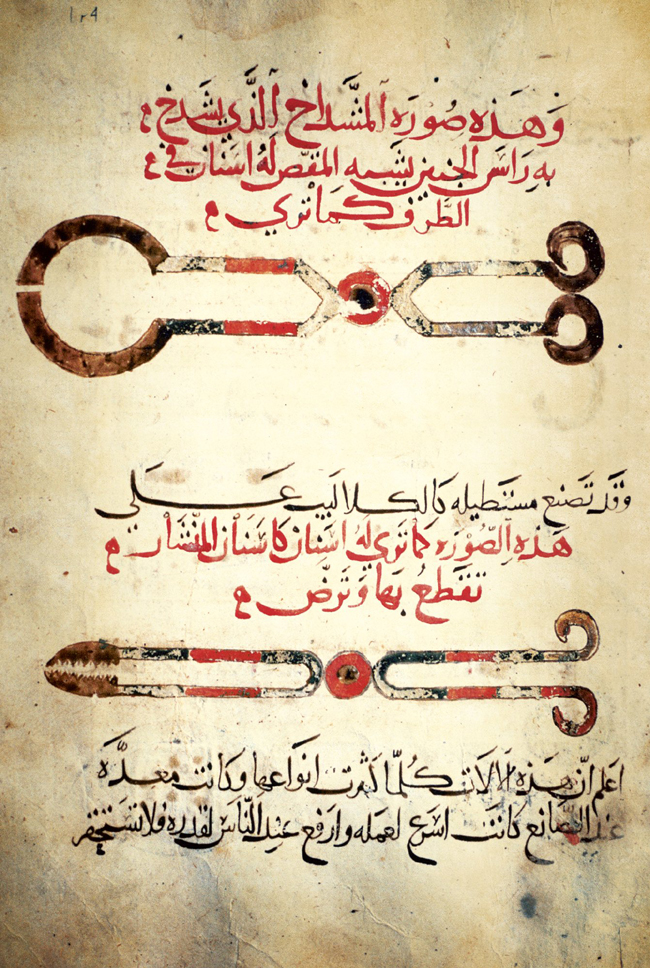 ١٢٤
وَهَذِه صُوَرَه المَشَّداخ الَّذي يَشدَخ
بِه رَاسَ الجَنِين يشَبه المقَصّ لَهُ اسَنان في
الطَّرف كَمَا تري
وَقَد تَصنَع مسَتَطيله كَالكلَاليب عَلَي
هَذِه الصّوُرَه كمَا تري لهُ اسنَان كَاسَنَان المنْشَار
تقَطعُ بَها وَتَرضّ
اعلم انّ هَذِه الالَات كُلمّا كَثُرت انوَاعها وَكانت معدَّه
عند الصَّانع كَانَت اسَرع لعمله وارفع عنِد النَّاس لقَدره وُلا تسَتحقر